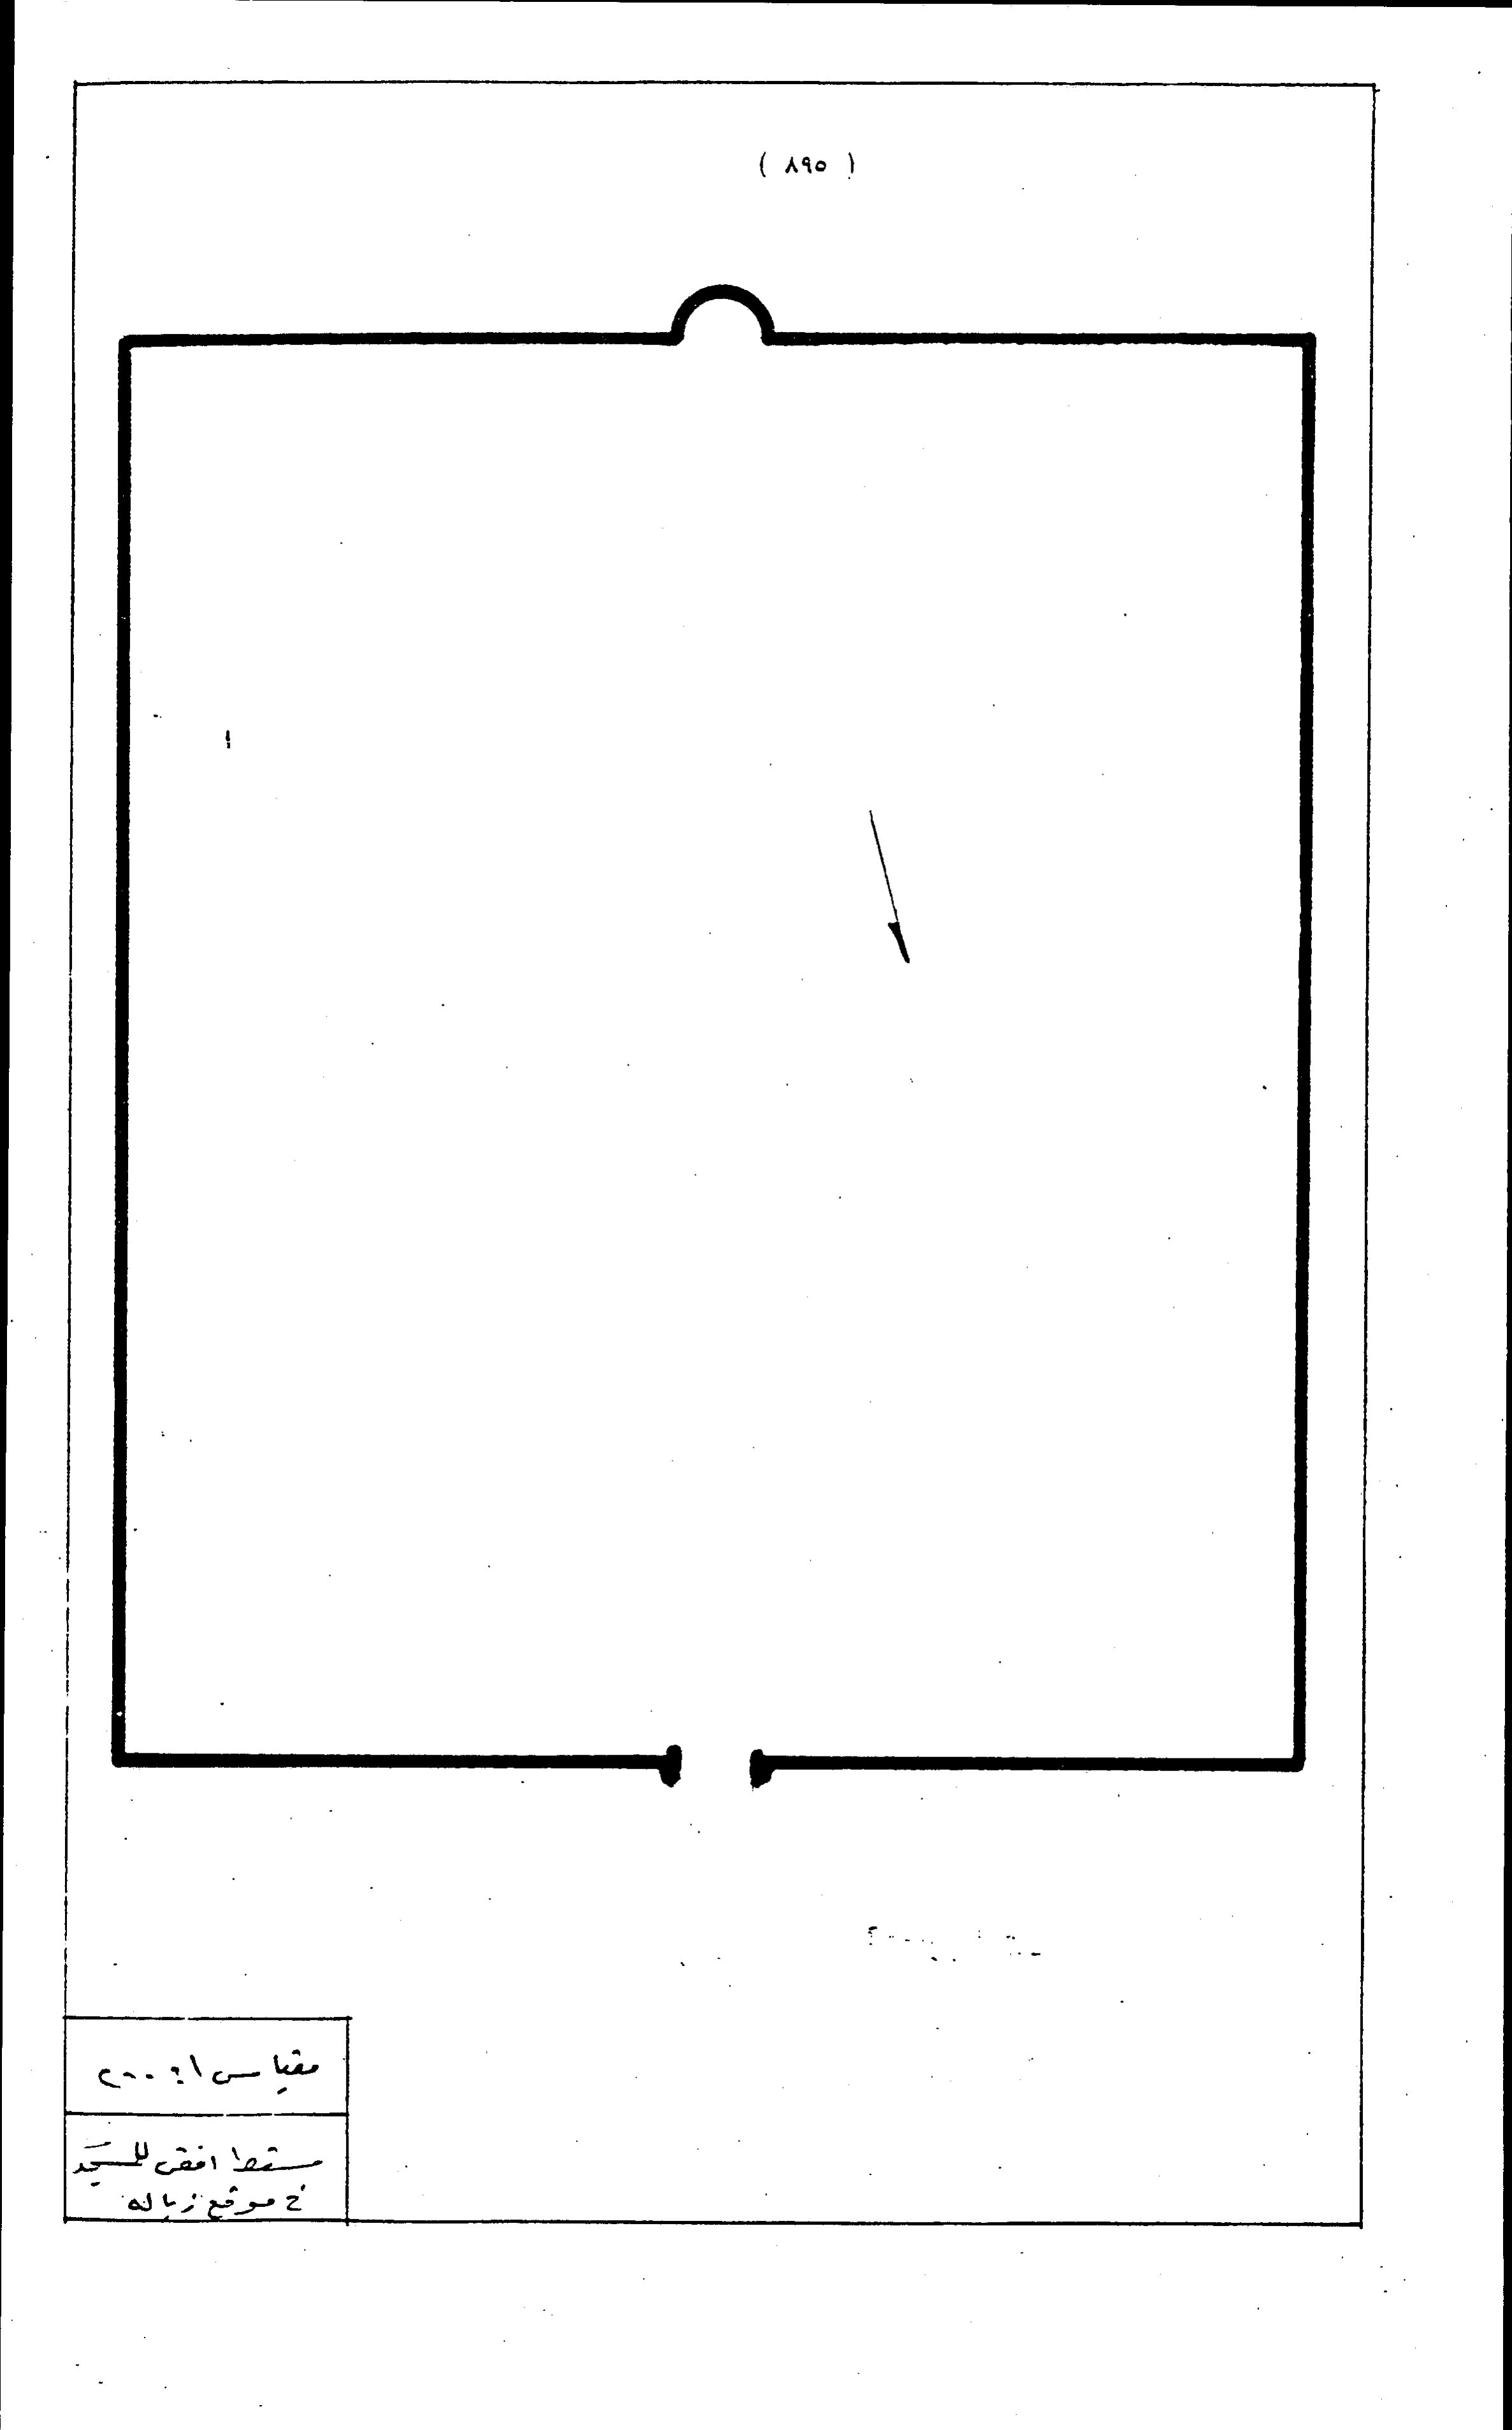 ( ٨٩٥ )
مقياس ١ : ٢٠٠
مسقط افقى للمسجد
في موقع زباله